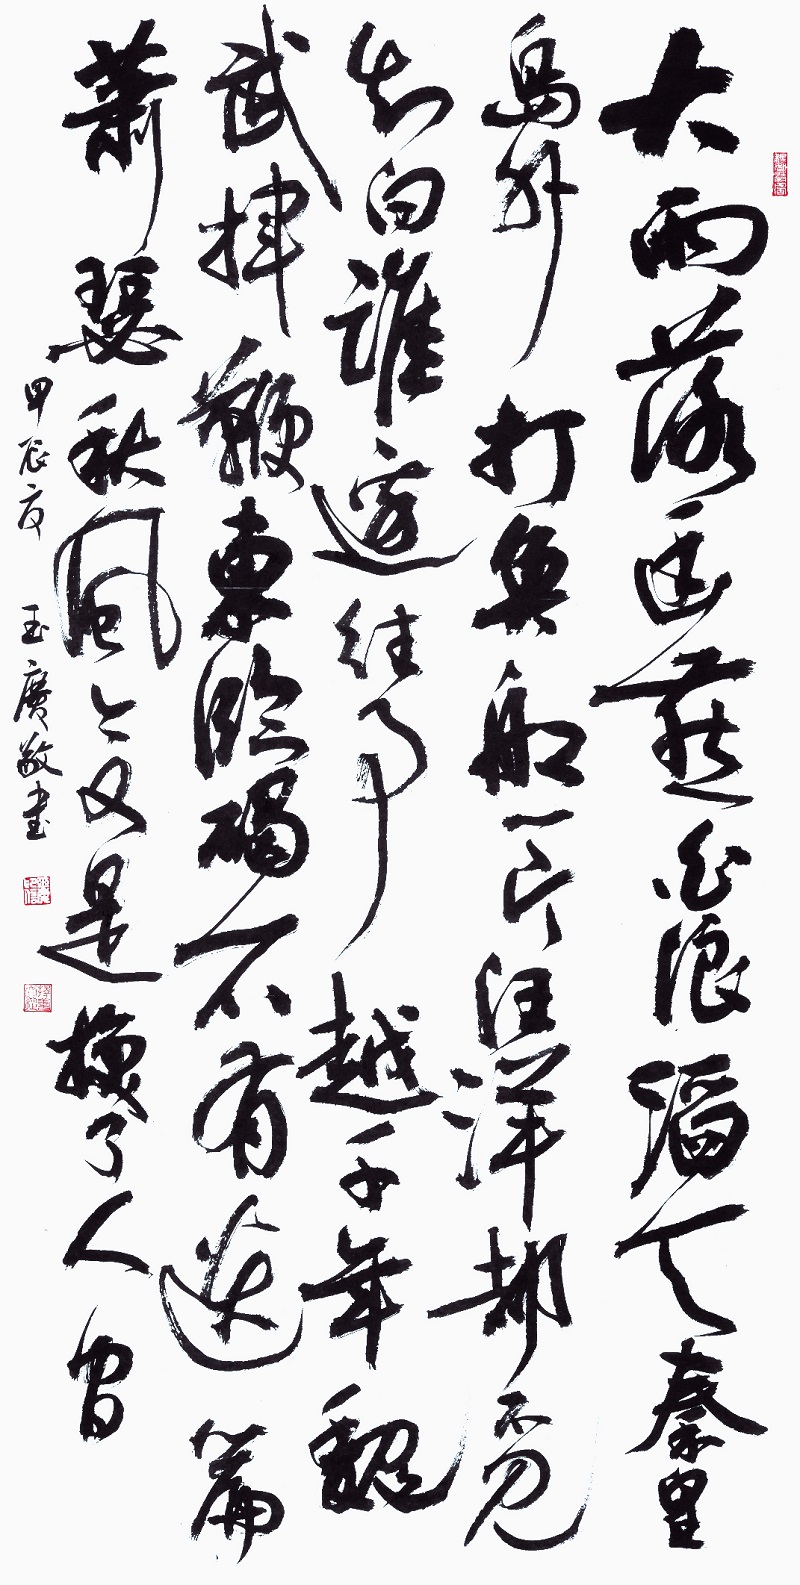 大雨落幽燕白浪滔天秦皇
島外打魚船一片汪洋都不見
知向誰邊往事越千年魏
武揮鞭東臨碣石有遺篇
蕭瑟秋風今又是換了人間
甲辰夏 玉廣敬書